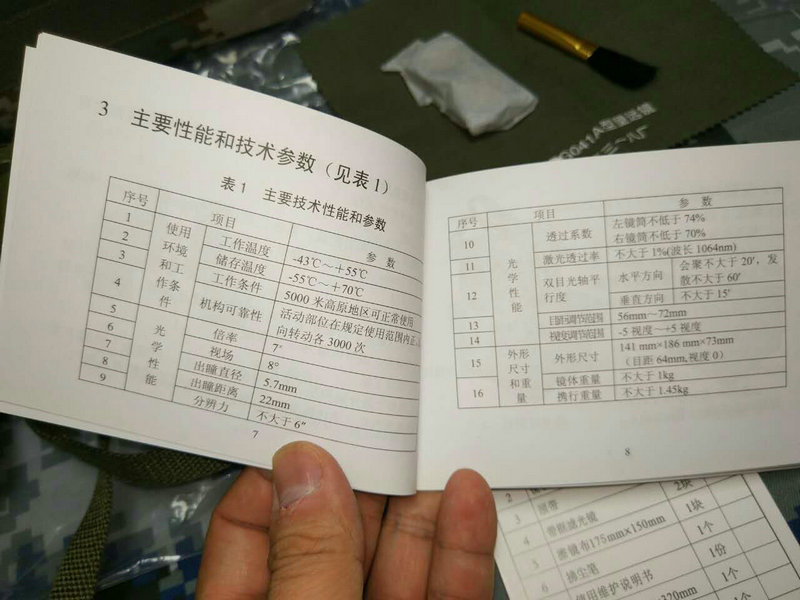 3 主要性能和技术参数（见表1）
表1 主要技术性能和参数
序号 项目 参 数
1 使用环境和工作条件 工作温度 -43℃～+55℃
2 储存温度 -55℃～+70℃
3 工作条件 5000 米高原地区可正常使用
4 机构可靠性 活动部位在规定使用范围内正、
向转动各 3000 次
5 光学性能 倍率 7ˣ
6 视场 8°
7 出瞳直径 5.7mm
8 出瞳距离 22mm
9 分辨力 不大于 6″
7
序号 项目 参 数
10 光学性能 透过系数 左镜筒不低于 74%
右镜筒不低于 70%
11 激光透过率 不大于 1%(波长 1064nm)
12 双目光轴平行度 水平方向 会聚不大于 20′，发
散不大于 60′
垂直方向 不大于 15′
13 目距调节范围 56mm～72mm
14 视度调节范围 -5 视度～+5 视度
15 外形尺寸和重量 外形尺寸 141 mm×186 mm×73mm
（目距 64mm,视度 0）
16 镜体重量 不大于 1kg
携行重量 不大于 1.45kg
8
2 2块
3 眼带 1块
4 带框滤光镜 1个
5 擦镜布175mm×150mm 1个
6 拂尘笔 1份
使用维护说明书 1个
×320mm 1个